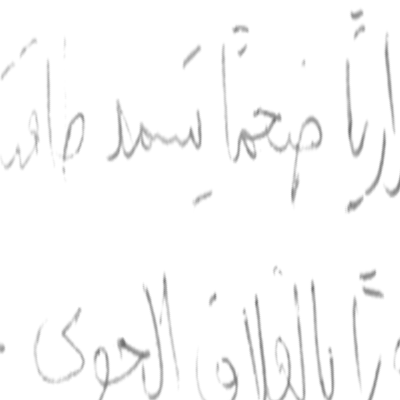 راريًا ضخمًا يستمد طاقت
رًا بالغلاف الجوي